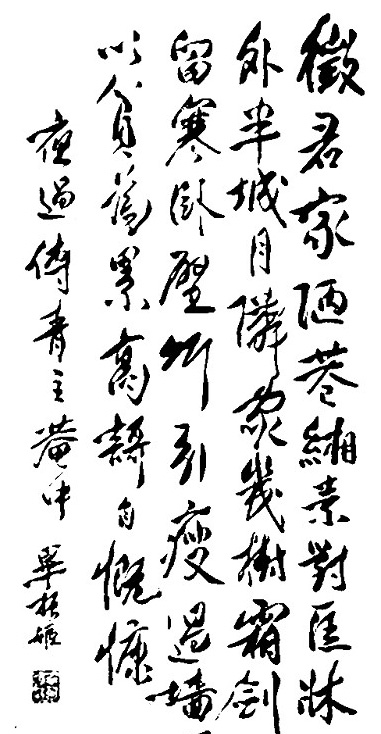 徵君家陋巷緗素對匡牀
外半城月隣家幾樹霜劍
留寒臥壁竹引瘦過墻
以貧為累高謌自慨慷
夜過傅青主菴中
畢振姬